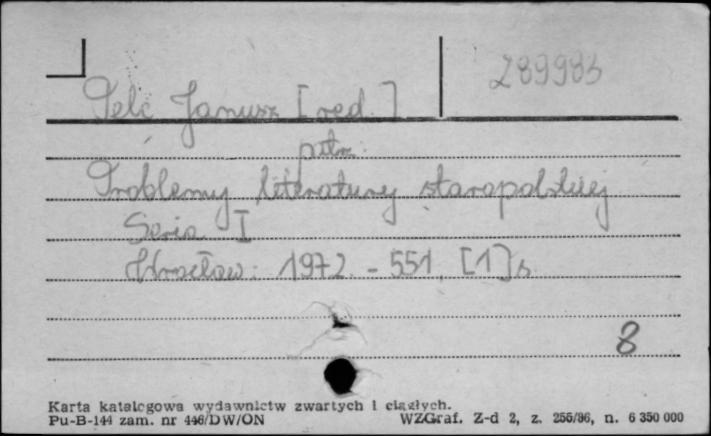 289983
Pelc Janusz [red.]
patrz:
Problemy literatury staropolskiej
Seria I
Wrocław: 1972. - 551, [1] s
8
Karta katalogowa wydawnictw zwartych i ciągłych.
Pu-B-144 zam. nr 446/DW/ON
WZGraf. Z-d 2, z. 255/86, n. 6 350 000